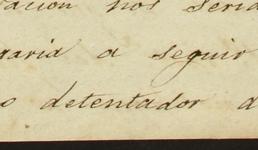 vacion nos seria
garia a seguir
o detentador d